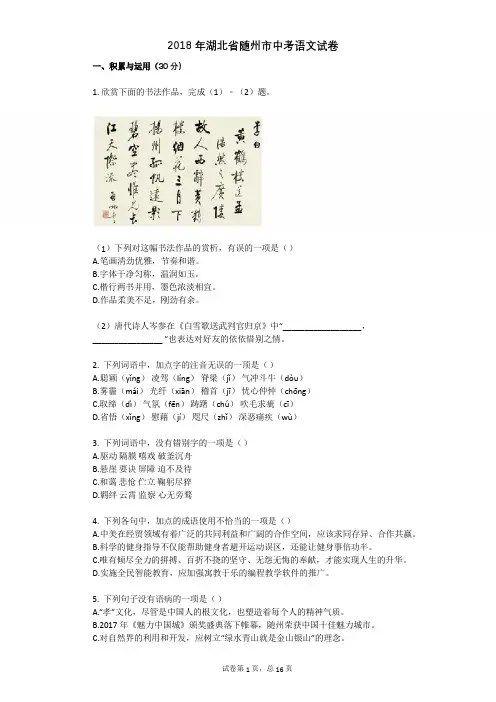 2018年湖北省随州市中考语文试卷
一、积累与运用（30分）
1. 欣赏下面的书法作品，完成（1）﹣（2）题。
李白
黄鶴楼送孟
浩然之廣陵
故人西辭黄鶴
楼烟花三月下
揚州孤帆遠影
碧空盡惟見長
江天際流
（1）下列对这幅书法作品的赏析，有误的一项是（）
A.笔画清劲优雅，节奏和谐。
B.字体干净匀称，温润如玉。
C.楷行两书并用，墨色浓淡相宜。
D.作品柔美不足，刚劲有余。
（2）唐代诗人岑参在《白雪歌送武判官归京》中“__________________，
________________ ”也表达对好友的依依惜别之情。
2. 下列词语中，加点字的注音无误的一项是（）
A.聪颖（yǐng） 凌驾（líng） 脊梁（jǐ） 气冲斗牛（dòu）
B.雾霾（mái） 光纤（xiān） 稽首（jī） 忧心忡忡（chōng）
C.取缔（dì） 气氛（fēn） 踌躇（chú） 吹毛求疵（cī）
D.省悟（xǐng） 慰藉（jí） 咫尺（zhǐ） 深恶痛疾（wù）
3. 下列词语中，没有错别字的一项是（）
A.驱动 隔膜 嘻戏 破釜沉舟
B.悬崖 要诀 屏障 迫不及待
C.和蔼 悲怆 伫立 鞠躬尽猝
D.羁绊 云霄 监察 心无旁鹜
4. 下列各句中，加点的成语使用不恰当的一项是（）
A.中美在经贸领域有着广泛的共同利益和广阔的合作空间，应该求同存异、合作共赢。
B.科学的健身指导不仅能帮助健身者避开运动误区，还能让健身事倍功半。
C.唯有倾尽全力的拼搏、百折不挠的坚守、无怨无悔的奉献，才能实现人生的升华。
D.实施全民智能教育，应加强寓教于乐的编程教学软件的推广。
5. 下列句子没有语病的一项是（）
A.“孝”文化，尽管是中国人的根文化，也塑造着每个人的精神气质。
B.2017年《魅力中国城》颁奖盛典落下帷幕，随州荣获中国十佳魅力城市。
C.对自然界的利用和开发，应树立“绿水青山就是金山银山”的理念。
试卷第1页，总16页